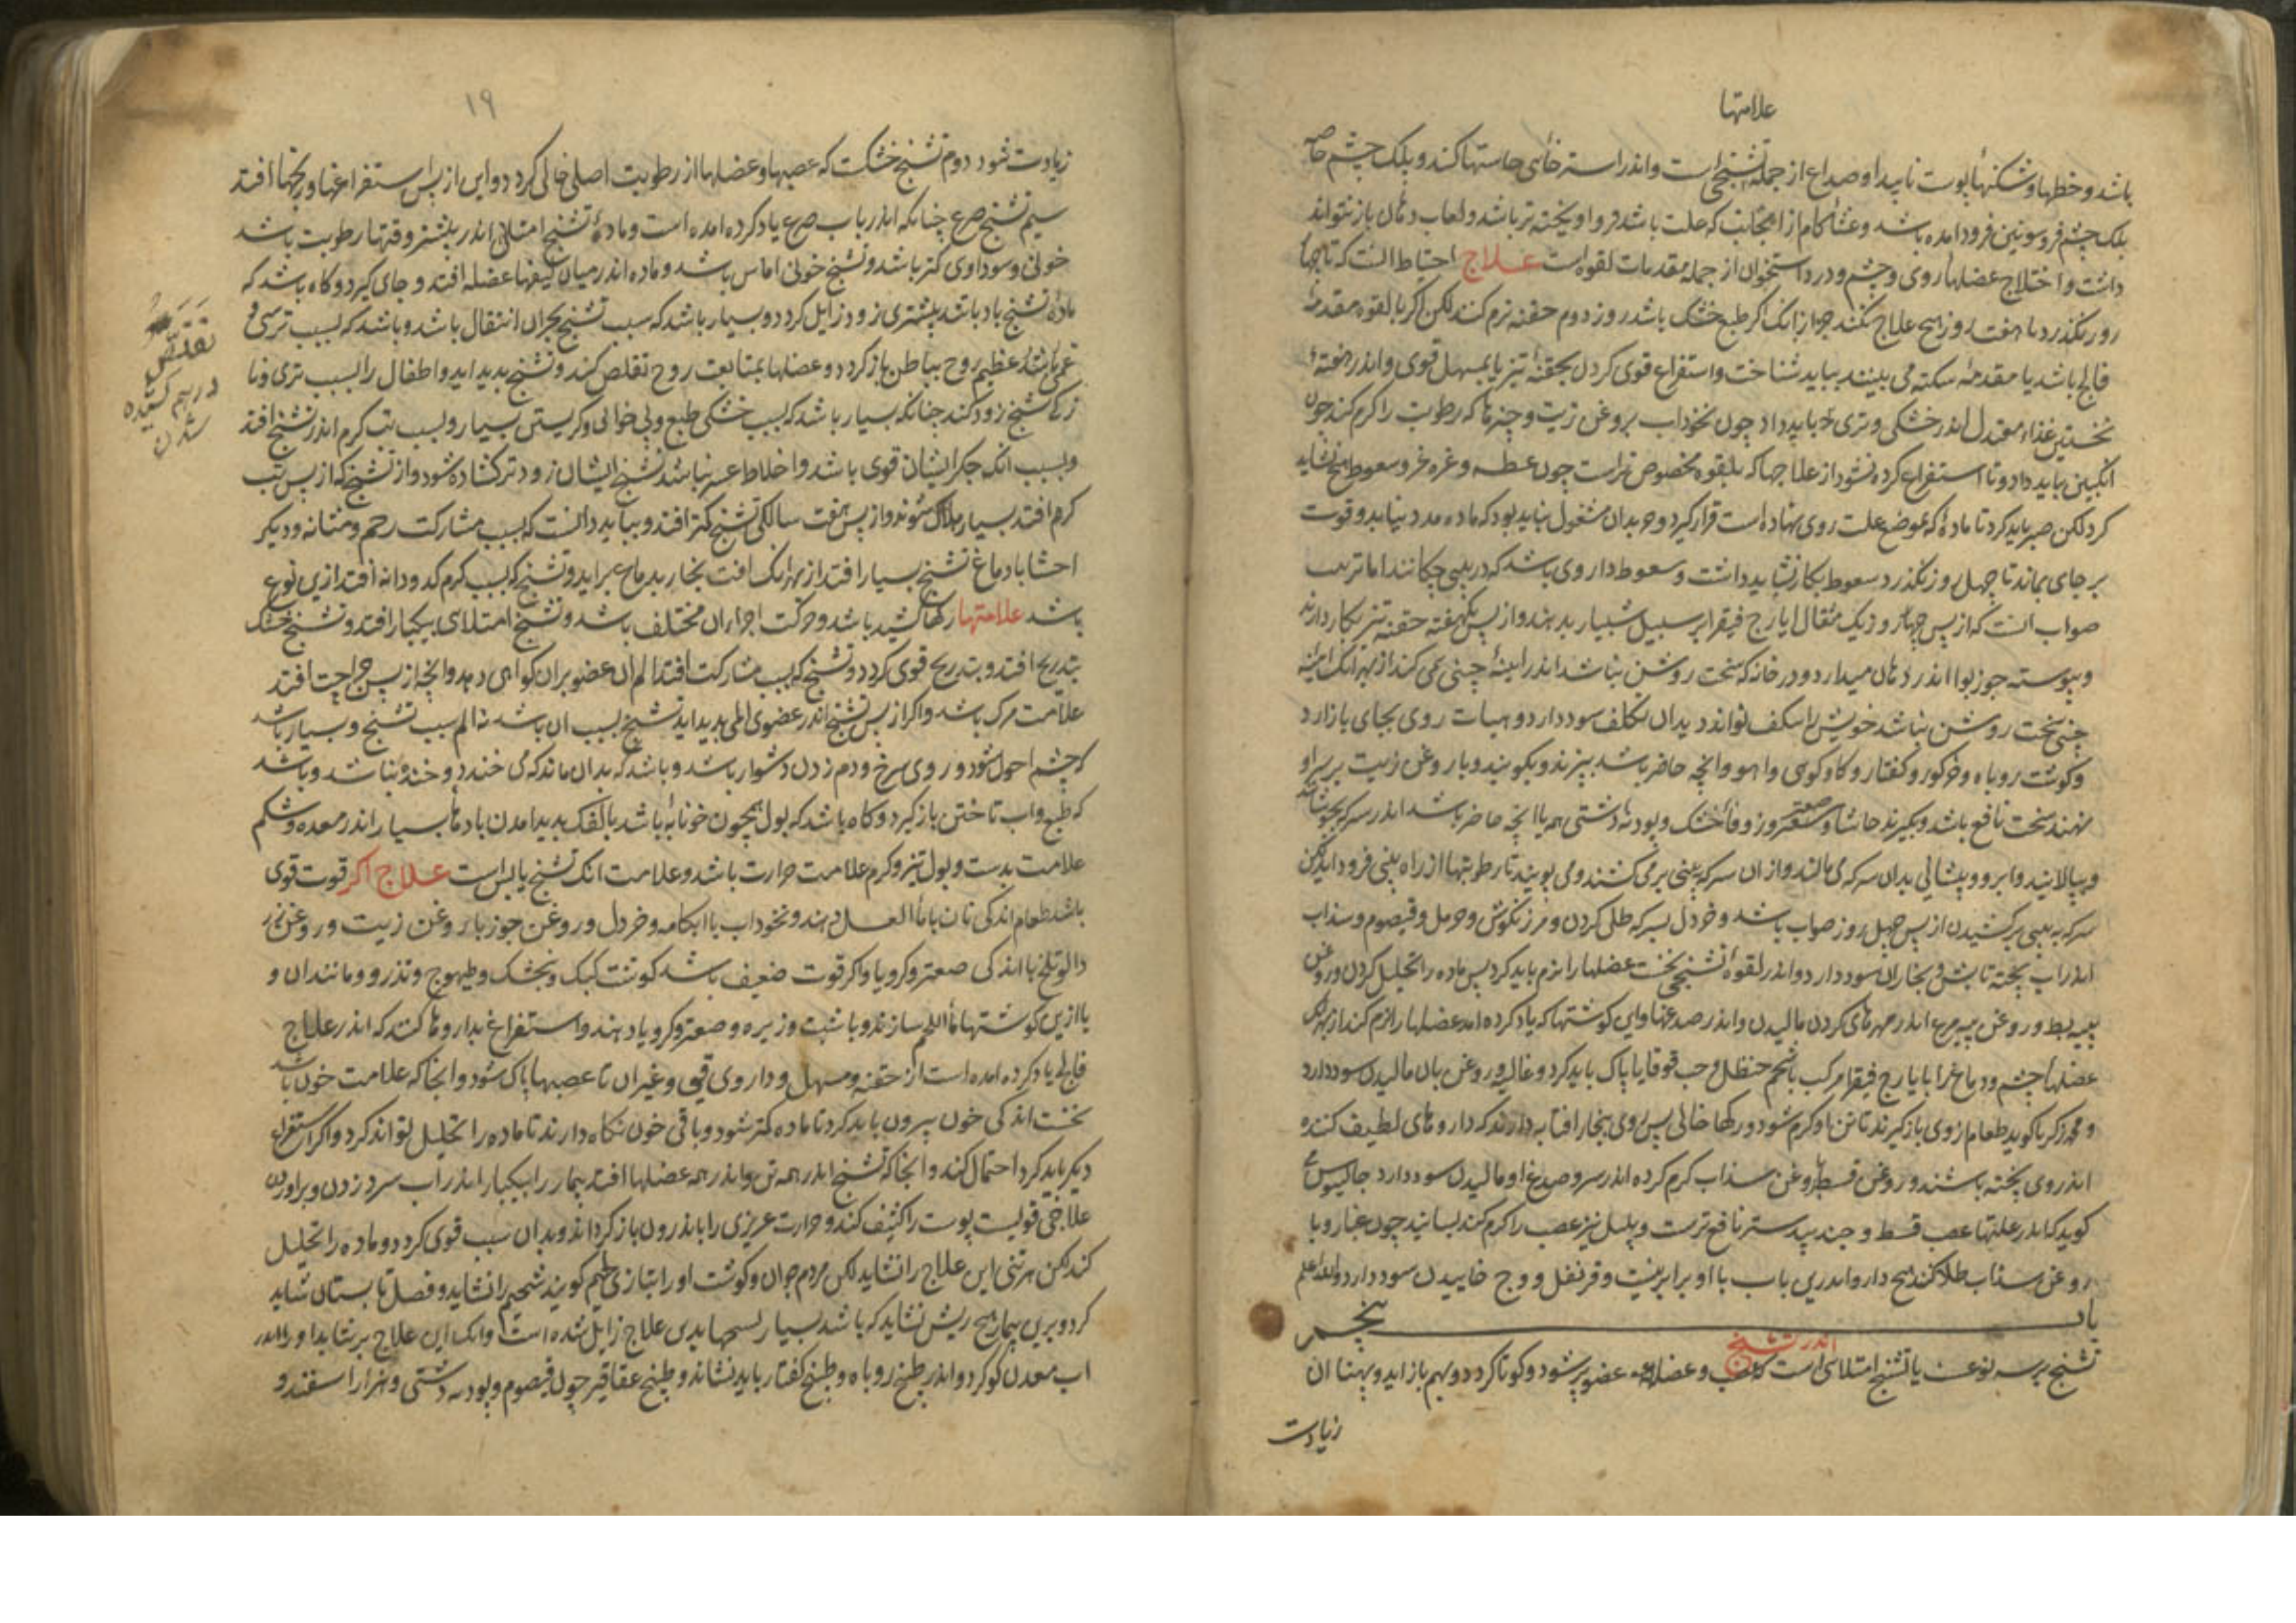 علامتها
باشد و خطها و شکنهاء پوست ناپیدا و صداع از جمله تشنجی است و اندر استرخائی حاستها کند و پلک چشم خاصه
پلک چشم فروسوئین فرود امده باشد و غشاء کام از انجانب که علت باشد فرو اویخته تر باشد و لعاب دهان باز نتواند
داشت و اختلاج عضلهاء روی و چشم و درد استخوان از جمله مقدمات لقوه است علاج احتیاط انست که تا چهار
روز بگذرد تا هفت روز هیچ علاج نکنند جز از انک اگر طبع خشک باشد روز دوم حقنه نرم کنند لکن اگر با لقوه مقدمهٔ
فالج باشد یا مقدمهٔ سکته می بینند بباید شناخت و استفراغ قوی کردن بحقنهٔ تیز یا بمسهل قوی و اندر هفتهٔ
نخستین غذاء معتدل اندر خشکی و تری باید داد چون نخوداب بروغن زیت و چیزها که رطوبت را گرم کند چون
انگبین نباید داد و تا استفراغ کرده نشود از علاجها که بلقوه مخصوص تر است چون عطسه و غرغره و سعوط هیچ نشاید
کرد لکن صبر باید کرد تا مادهٔ که بموضع علت روی نهاده است قرار گیرد و بدان مشغول نباید بود که ماده مدد نیابد و قوت
بر جای بماند تا چهل روز نگذرد سعوط بکار نشاید داشت و سعوط داروی باشد که در بینی چکانند اما ترتیب
صواب انست که از پس چهار روز یک مثقال ایارج فیقرا بر سبیل شبیار بدهند و از پس یکهفته حقنه تیز بکار دارند
و پیوسته جوز بوا اندر دهان میدارد و در خانه که سخت روشن نباشد اندر اینهٔ چینی می کند از بهر انک اینهٔ
چینی سخت روشن نباشد خویش را بتکلف تواند دید ان تکلف سود دارد و هیات روی بجای باز ارد
و گوشت روباه و خرگور و کفتار و گاو کوهی و اهو و انچه حاضر باشد بپزند و بکوبند و با روغن زیت بر سر او
نهند سخت نافع باشد و بگیرند حاشا و صعتر و زوفاء خشک و پودنه دشتی همه یا انچه حاضر باشد اندر سرکه بجوشانند
و بپالایند و ابرو و پیشانی بدان سرکه می مالند و از ان سرکه ببینی بر می کشند و می بویند تا رطوبتها از راه بینی فرود اید لکن
سرکه به بینی بر کشیدن از پس چهل روز صواب باشد و خردل بسرکه طلی کردن و مرزنگوش و حرمل و قیصوم و سذاب
اندر اب پخته تابش و بخار ان سود دارد و اندر لقوهٔ تشنجی نخست عضلها را نرم باید کرد پس ماده را تحلیل کردن و روغن
پیه بط و روغن پیه مرغ اندر مهرهای گردن مالیدن و اندر صدغها و این گوشتها که یاد کرده امد عضلها را نرم کند از بهر
عضلهاء چشم و دماغ را بایارج فیقرا مرکب بشحم حنظل و حب قوقایا پاک باید کرد و غالیه و روغن بان مالیدن سود دارد
و محمد زکریا گوید طعام از وی باز گیرند تا تن او گرم شود و رگها خالی پس روی ببخار افتابه دارند که داروهای لطیف کننده
اندر وی پخته باشند و روغن قسط و روغن سذاب گرم کرده اندر سر و صدغ او مالیدن سود دارد جالینوس
گوید که اندر علتها عصب قسط و جند بیدستر نافع ترست و پلپل نیز عصب را گرم کند بسایند چون غبار و با
روغن سذاب طلا کنند هیچ دارو اندرین باب با او برابر نیست و قرنفل و وج خاییدن سود دارد والله اعلم
باب پنجم
اندر تشنج
تشنج بر سه نوعست یا تشنج امتلائی است که عصب و عضلهاء عضو پر شود و کوتا گردد و بهم باز اید و پهنا ان
زیادت
١٩
زیادت شود دوم تشنج خشکست که عصبها و عضلها از رطوبت اصلی خالی گردد و این از پس استفراغها و رنجها افتد
سیم تشنج صرع چنانکه اندر باب صرع یاد کرده امده است و مادهٔ تشنج امتلائی اندر بیشتر وقتها رطوبت باشد
خونی و سوداوی کمتر باشد و تشنج خونی اماس باشد و ماده اندر میان لیفهاء عضله افتد و جای گیرد و گاه باشد که
مادهٔ تشنج باد باشد بیشتری زود زایل گردد و بسیار باشد که سبب تشنج بحران انتقال باشد و باشد که بسبب ترسی و
غمی باشد عظیم روح بباطن باز گردد و عضلها بمتابعت روح تقلص کند و تشنج پدید اید و اطفال را بسبب تری و نا
زکی تشنج زود کند چنانکه بسیار باشد که بسبب خشکی طبع و بی خوابی و گریستن بسیار و بسبب تب گرم اندر تشنج افتد
و بسبب انک جگر ایشان قوی باشد و اخلاط عسر نباشد تشنج ایشان زودتر گشاده شود و از تشنج که از پس تب
گرم افتد بسیار هلاک شوند و از پس هفت سالگی تشنج کمتر افتد و بباید دانست که بسبب مشارکت رحم و مثانه و دیگر
احشا با دماغ تشنج بسیار افتد از بهر انک افت بخار بدماغ بر اید و تشنج که بسبب کرم کدودانه افتد ازین نوع
باشد علامتها رگها کشید باشد و حرکت اجزاء ان مختلف باشد و تشنج امتلائی بیکبار افتد و تشنج خشک
بتدریج افتد و بتدریج قوی گردد و تشنج که بسبب مشارکت افتد الم ان عضو بر ان گواهی دهد و انچه از پس جراحت افتد
علامت مرگ باشد و اگر از پس تشنج اندر عضوی المی پدید اید تشنج بسبب ان باشد نه الم سبب تشنج و بسیار باشد
که چشم احول شود و روی سرخ و دم زدن دشوار باشد و باشد که بدان ماند که می خندد و خنده نباشد و باشد
که طبع و اب تاختن باز گیرد و گاه باشد که بول همچون خونابه باشد با کفک پدید امدن بادهاء بسیار اندر معده و شکم
علامت بدست و بول تیز و گرم علامت حرارت باشد و علامت انک تشنج یابس است علاج اگر قوت قوی
باشد طعام اندکی نان با ماء العسل دهند و نخوداب با ابکامه و خردل و روغن جوز با روغن زیت و روغن
بادام تلخ با اندکی صعتر و کرویا و اگر قوت ضعیف باشد گوشت کبک و بنجشک و طیهوج و تذرو و مانند ان و
یا ازین گوشتها ماء اللحم سازند و با شبت و زیره و صعتر و کرویا دهند و استفراغ بداروها کنند که اندر علاج
فالج یاد کرده امده است از حقنه و مسهل و داروی قی و غیر ان تا عصبها پاک شود و انجا که علامت خون باشد
نخست اندکی خون بیرون باید کرد تا ماده کمتر شود و باقی خون نگاه دارند تا ماده را تحلیل تواند کرد و اگر استفراغ
دیگر باید کرد احتمال کند و انجا که تشنج اندر همه تن و اندر همه عضلها افتد بیمار را بیکبار اندر اب سرد زدن و بر اوردن
علاجی قویست پوست را کثیف کند و حرارت غریزی را باندرون باز گرداند و بدان سبب قوی گردد و ماده را تحلیل
کند لکن هر تنی این علاج را نشاید لکن مردم جوان و گوشت اور ابتازی لحیم گویند شحیم را نشاید و فصل تابستان شاید
کرد و برین بیمار هیچ ریش نشاید که باشد بسیار تشنجها بدین علاج زایل شده است و انک این علاج بر نتابد او را اندر
اب معدن گوگرد و اندر طبیخ روباه و طبیخ کفتار باید نشاند و طبیخ عقاقیر چون قیصوم و پودنه دشتی و هزار اسفند و
تقلص
درهم کشیده
شدن